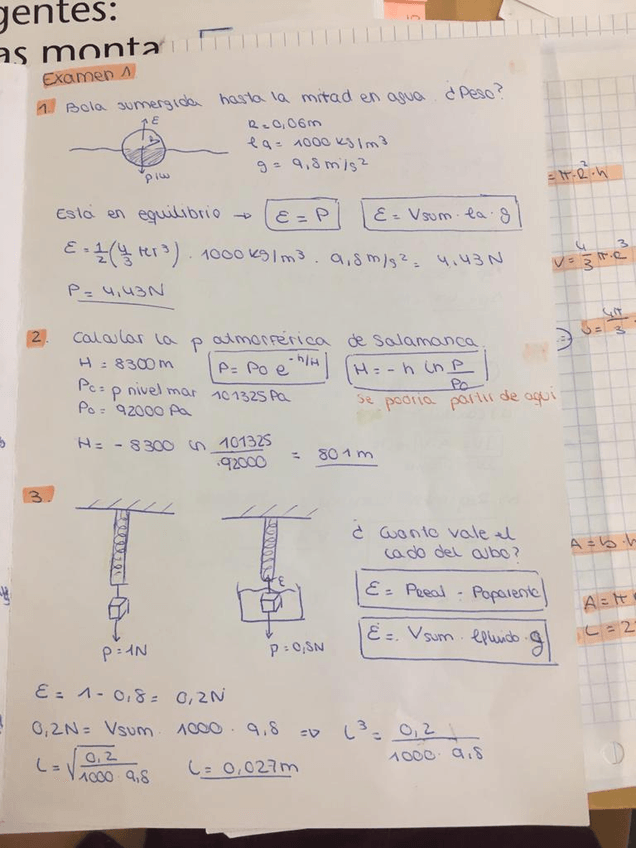 gentes:
as monta
Examen 1
1. Bola sumergida hasta la mitad en agua. ¿Peso?
E
R = 0,06m
ρa = 1000 kg/m³
g = 9,8 m/s²
P/W
Está en equilibrio → E = P E = Vsum · ρa · g
E = 1/2 (4/3 πr³) · 1000 kg/m³ · 9,8 m/s² = 4,43N
P = 4,43N
2. Calcular la p atmosférica de Salamanca.
H = 8300m P = P0 e^(-h/H) H = -h ln P/P0
P0 = p nivel mar 101325Pa se podría partir de aquí
P0 = 92000 Pa
H = - 8300 ln 101325/92000 = 801m
3.
¿Cuanto vale el
lado del cubo?
E
E = Preal - Paparente
E = Vsum · ρfluido · g
P = 1N P = 0,8N
E = 1 - 0,8 = 0,2N
0,2N = Vsum · 1000 · 9,8 => L³ = 0,2/(1000 · 9,8)
L = √(0,2/(1000 · 9,8)) L = 0,027m
= π·R²·h
V = 4/3 π·R³
A = b·h